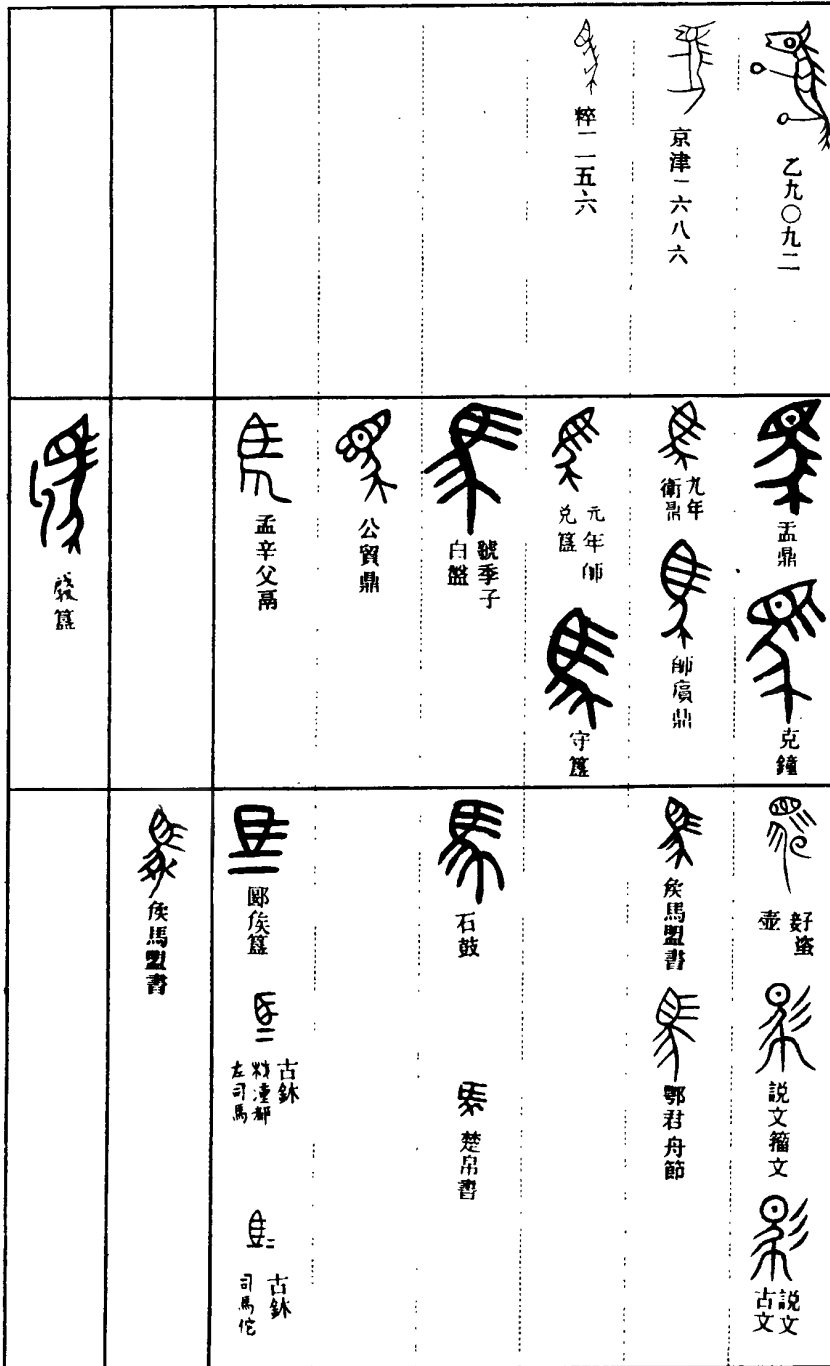 乙九〇九二
京津一六八六
粹一一五六
盂鼎
克鐘
九年
衛鼎
師𤸫鼎
元年師
兑簋
守簋
虢季子
白盤
公貿鼎
孟辛父鬲
簋
𧊒
壺
說文籀文
說文
古文
侯馬盟書
鄂君舟節
石鼓
楚帛書
郾侯簋
古鉨
左司馬
古鉨
司馬佗
侯馬盟書